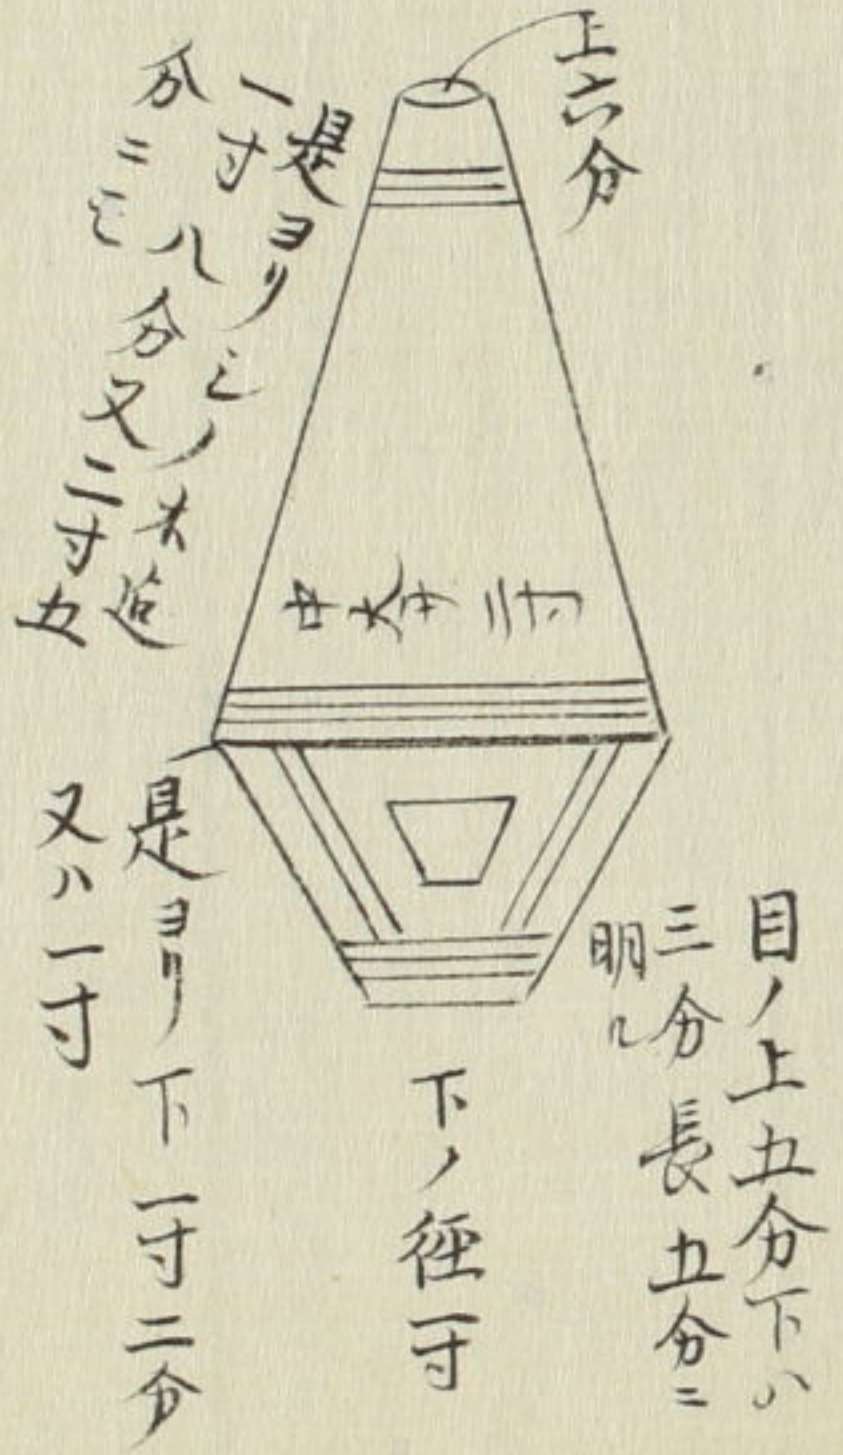 上六分
是ヨリ
一寸八分又二寸五
分ニモ
中大サ二寸
目ノ上五分下ハ
三分長五分ニ
明ル
下ノ徑一寸
是ヨリ下一寸二分
又ハ一寸